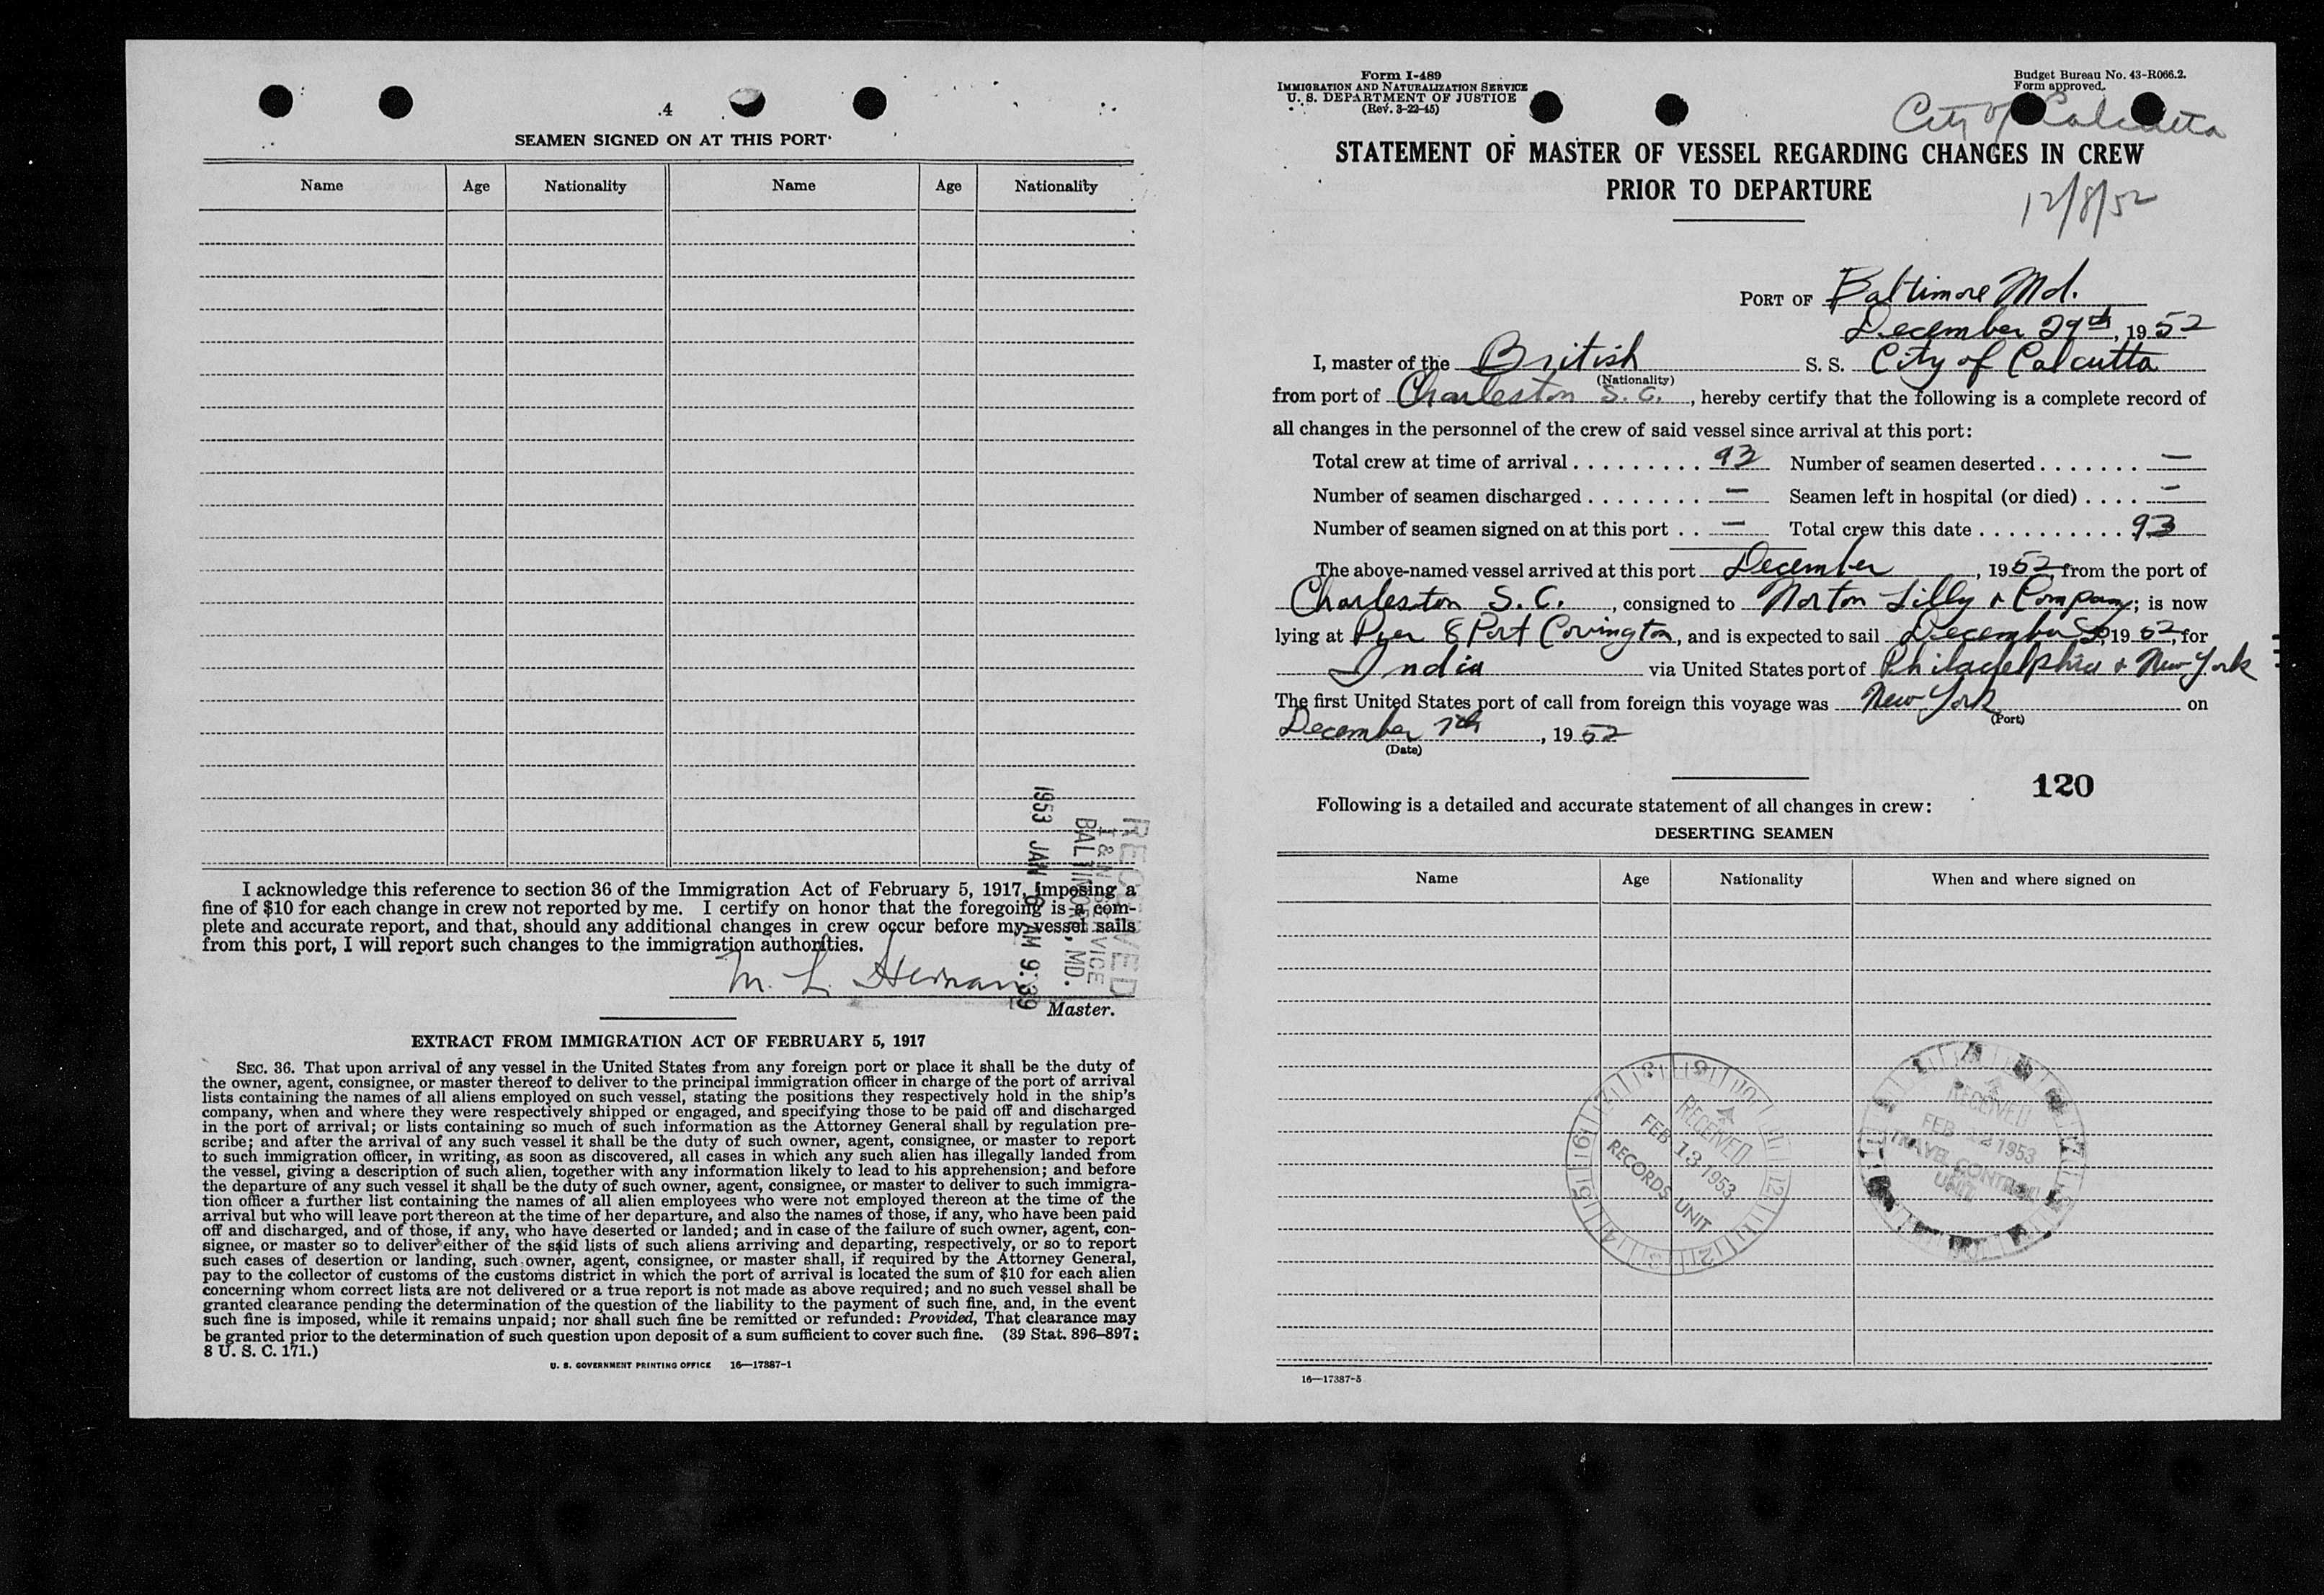 4
SEAMEN SIGNED ON AT THIS PORT
Name Age Nationality Name Age Nationality
I acknowledge this reference to section 36 of the Immigration Act of February 5, 1917, imposing a
fine of $10 for each change in crew not reported by me. I certify on honor that the foregoing is a com-
plete and accurate report, and that, should any additional changes in crew occur before my vessel sails
from this port, I will report such changes to the immigration authorities.
M. L.
Master.
RECEIVED
I & N SERVICE
BALTIMORE, MD.
1953 JAN 6 AM 9:39
EXTRACT FROM IMMIGRATION ACT OF FEBRUARY 5, 1917
SEC. 36. That upon arrival of any vessel in the United States from any foreign port or place it shall be the duty of
the owner, agent, consignee, or master thereof to deliver to the principal immigration officer in charge of the port of arrival
lists containing the names of all aliens employed on such vessel, stating the positions they respectively hold in the ship's
company, when and where they were respectively shipped or engaged, and specifying those to be paid off and discharged
in the port of arrival; or lists containing so much of such information as the Attorney General shall by regulation pre-
scribe; and after the arrival of any such vessel it shall be the duty of such owner, agent, consignee, or master to report
to such immigration officer, in writing, as soon as discovered, all cases in which any such alien has illegally landed from
the vessel, giving a description of such alien, together with any information likely to lead to his apprehension; and before
the departure of any such vessel it shall be the duty of such owner, agent, consignee, or master to deliver to such immigra-
tion officer a further list containing the names of all alien employees who were not employed thereon at the time of the
arrival but who will leave port thereon at the time of her departure, and also the names of those, if any, who have been paid
off and discharged, and of those, if any, who have deserted or landed; and in case of the failure of such owner, agent, con-
signee, or master so to deliver either of the said lists of such aliens arriving and departing, respectively, or so to report
such cases of desertion or landing, such owner, agent, consignee, or master shall, if required by the Attorney General,
pay to the collector of customs of the customs district in which the port of arrival is located the sum of $10 for each alien
concerning whom correct lists are not delivered or a true report is not made as above required; and no such vessel shall be
granted clearance pending the determination of the question of the liability to the payment of such fine, and, in the event
such fine is imposed, while it remains unpaid; nor shall such fine be remitted or refunded: Provided, That clearance may
be granted prior to the determination of such question upon deposit of a sum sufficient to cover such fine. (39 Stat. 896–897;
8 U. S. C. 171.)
U. S. GOVERNMENT PRINTING OFFICE 16—17387-1
Form I-489
IMMIGRATION AND NATURALIZATION SERVICE
U. S. DEPARTMENT OF JUSTICE
(Rev. 3-22-45)
Budget Bureau No. 43-R066.2.
Form approved.
City of Calcutta
STATEMENT OF MASTER OF VESSEL REGARDING CHANGES IN CREW
PRIOR TO DEPARTURE
12/8/52
PORT OF Baltimore Md.
December 29th, 1952
I, master of the British S. S. City of Calcutta
(Nationality)
from port of Charleston S. C., hereby certify that the following is a complete record of
all changes in the personnel of the crew of said vessel since arrival at this port:
Total crew at time of arrival 93 Number of seamen deserted —
Number of seamen discharged — Seamen left in hospital (or died) —
Number of seamen signed on at this port — Total crew this date 93
The above-named vessel arrived at this port December, 1952 from the port of
Charleston S. C., consigned to Norton Lilly & Company; is now
lying at Pier 8 Port Covington, and is expected to sail December 1952, for
India via United States port of Philadelphia & New York
The first United States port of call from foreign this voyage was New York on
(Port)
December 7th, 1952
(Date)
120
Following is a detailed and accurate statement of all changes in crew:
DESERTING SEAMEN
Name Age Nationality When and where signed on
RECEIVED
FEB 13 1953
RECORDS UNIT
RECEIVED
FEB 12 1953
TRAVEL CONTROL
UNIT
16—17387-5